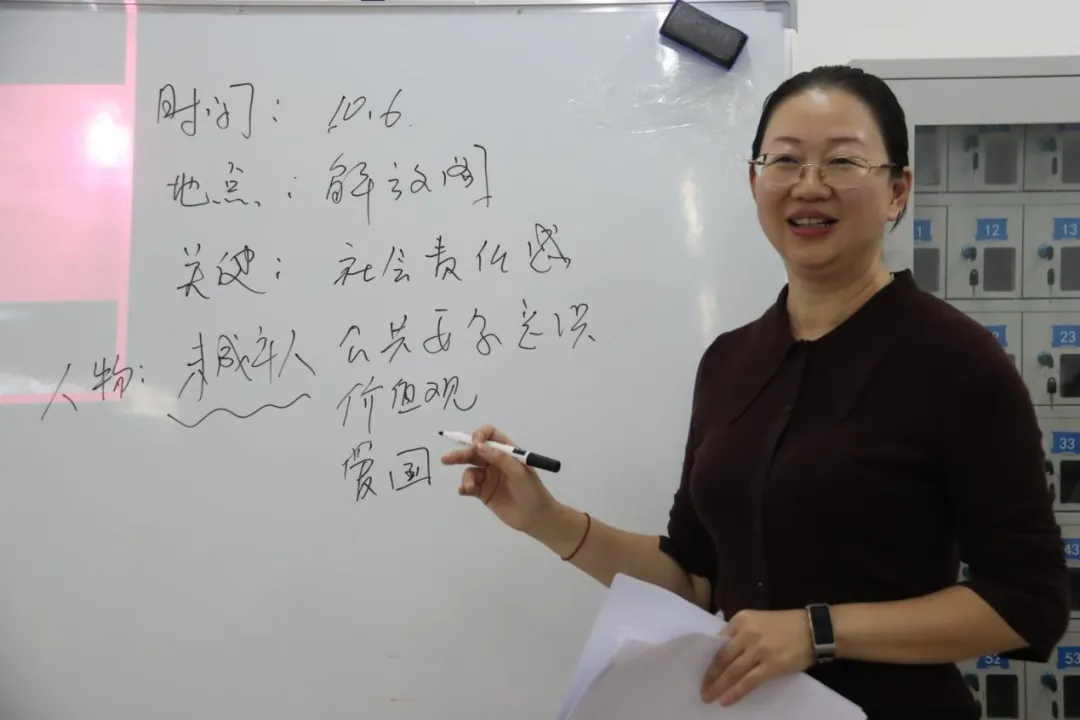 时间： 10.6
地点： 解放阁
关键： 社会责任感
人物： 未成年人
公共安全意识
价值观
爱国
1
12
13
23
33
43
52
53